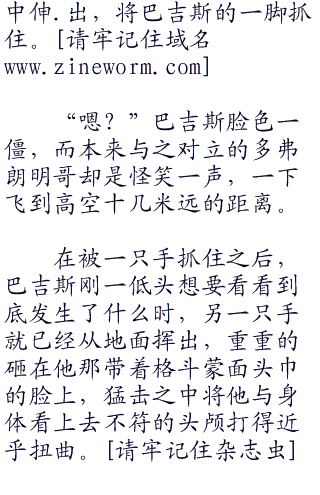 中伸.出，将巴吉斯的一脚抓
住。[请牢记住域名
www.zineworm.com]
“嗯？”巴吉斯脸色一
僵，而本来与之对立的多弗
朗明哥却是怪笑一声，一下
飞到高空十几米远的距离。
在被一只手抓住之后，
巴吉斯刚一低头想要看看到
底发生了什么时，另一只手
就已经从地面挥出，重重的
砸在他那带着格斗蒙面头巾
的脸上，猛击之中将他与身
体看上去不符的头颅打得近
乎扭曲。[请牢记住杂志虫]